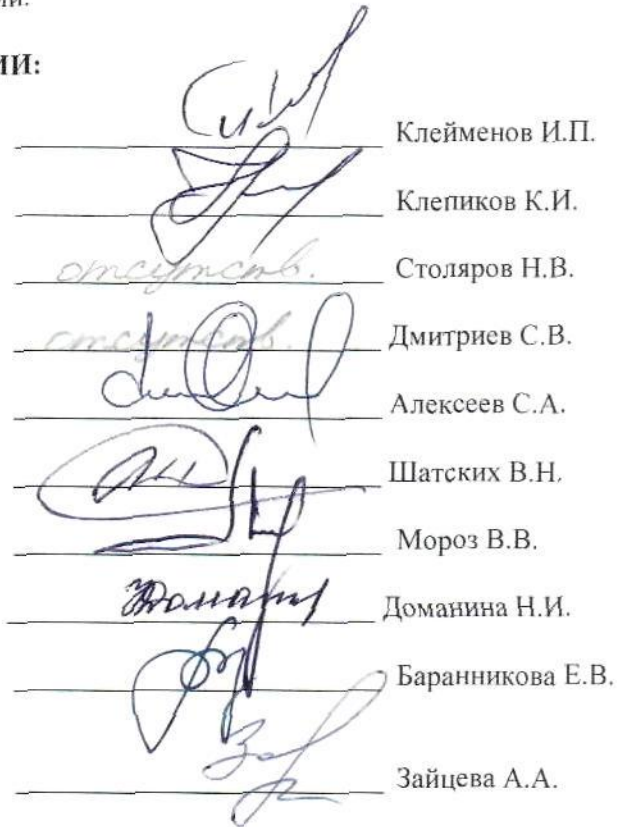 ИИ:
Клейменов И.П.
Клепиков К.И.
отсутств. Столяров Н.В.
отсутств. Дмитриев С.В.
Алексеев С.А.
Шатских В.Н.
Мороз В.В.
Доманина Н.И.
Баранникова Е.В.
Зайцева А.А.